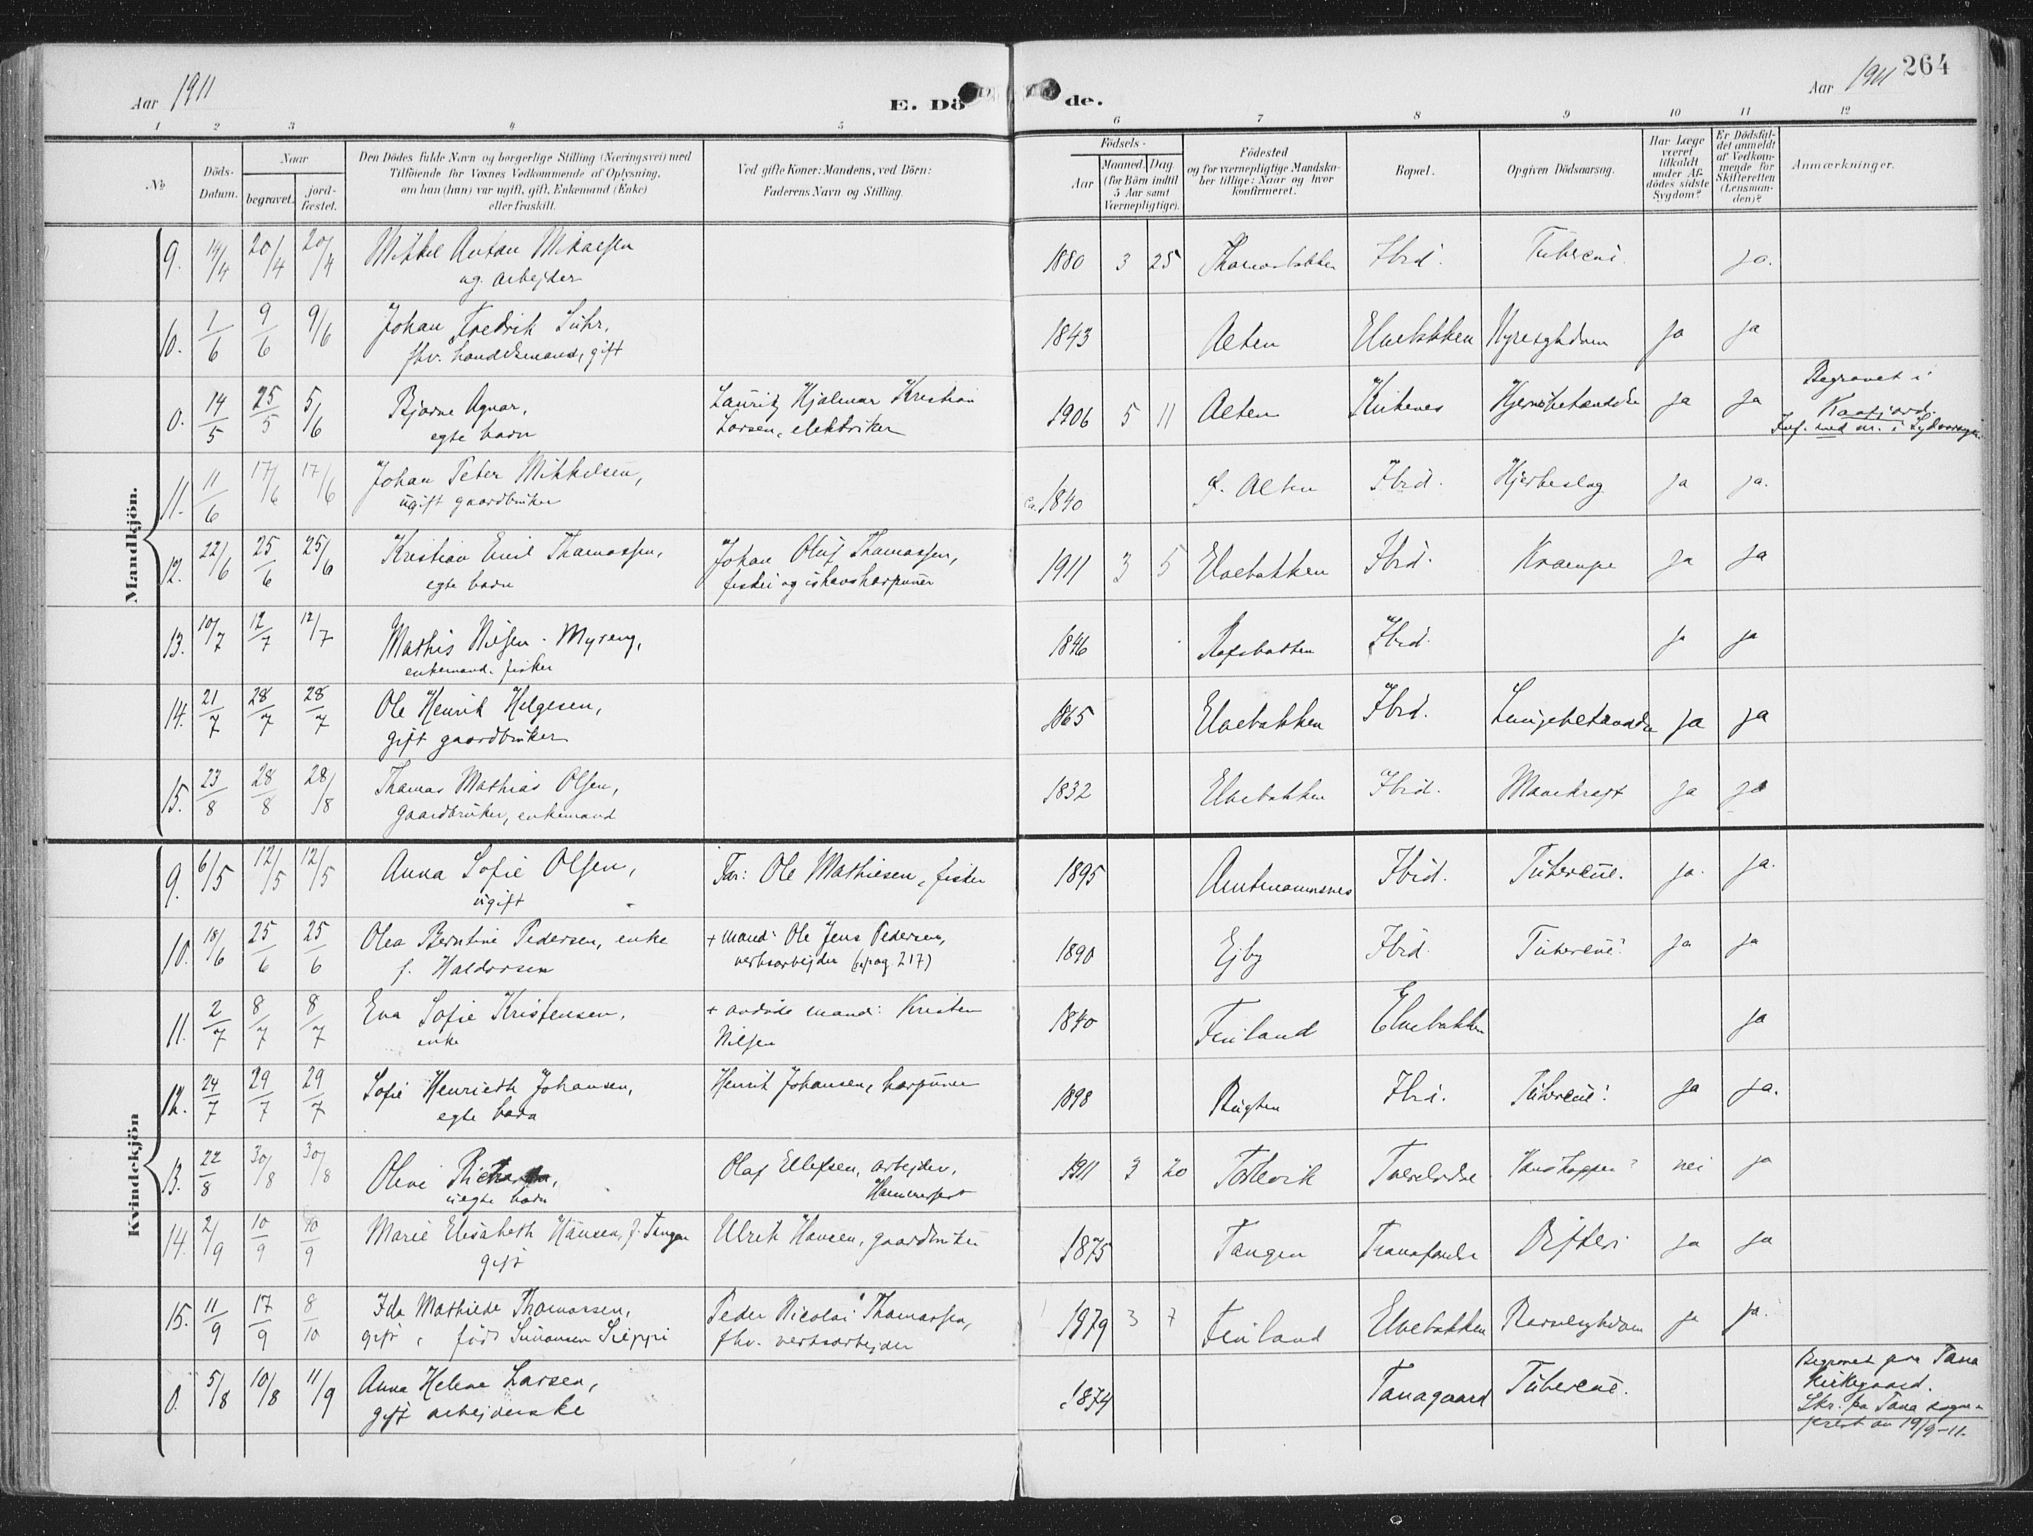 Aar 1911
E. Dö de.
Aar 1911 264
1 2 3 4 5 6 7 8 9 10 11 12
No
Döds-Datum.
Naar
begravet.
jord-fæstet.
Den Dödes fulde Navn og borgerlige Stilling (Næringsvei) med
Tilföiende for Voxnes Vedkommende af Oplysning,
om han (hun) var ugift, gift, Enkemand (Enke)
eller fraskilt.
Ved gifte Koner: Mandens, ved Börn:
Faderens Navn og Stilling.
Födsels-
Aar
Maaned. Dag
(for Börn indtil
5 Aar samt
Værnepligtige).
Födested
og for værnepligtige Mandska-
ber tillige: Naar og hvor
konfirmeret.
Bopæl.
Opgiven Dödsaarsag.
Har Læge
været
tilkaldt
under Af-
dödes sidste
Sygdom?
Er Dödsfal-
det anmeldt
af Vedkom-
mende for
Skifteretten
(Lensman-
den)?
Anmærkninger.
Mandkjön.
9. 14/4 20/4 20/4 Mikkel Anton Mikaelsen 1880 3 25 Ibid. Tubercul. ja.
ug. arbejder
10. 1/6 9/6 9/6 Johan Fredrik Suhr, 1843 Alten Elvebakken Nyresygdom ja ja
fhv. handelsmand, gift
0. 14/5 25/5 5/6 Bjarne Agnar, Lauritz Hjalmar Kristian 1906 5 11 Alten Kirkenes Hjernebetændelse ja ja Begravet i
egte barn Larsen, elektriker Kaafjord.
11. 11/6 17/6 17/6 Johan Peter Mikkelsen, ca. 1840 f. Alten Ibid. Hjerteslag ja ja.
ugift gaardbruker
12. 22/6 25/6 25/6 Kristian Emil Thomassen, Johan Oluf Thomassen, 1911 3 5 Elvebakken Ibid. Krampe ja ja
egte barn fisker og ishavsharpuner
13. 10/7 12/7 12/7 Mathis Nilsen - Myreng, 1846 Rafsbotten Ibid. ja ja
enkemand. fisker
14. 21/7 28/7 28/7 Ole Henrik Helgesen, 1865 Elvebakken Ibid. Lungebetændelse ja ja
gift gaardbruker
15. 23/8 28/8 28/8 Thomas Mathias Olsen, 1832 Elvebakken Ibid. Mavekræft ja ja
gaardbruker, enkemand
Kvindekjön
9. 6/5 12/5 12/5 Anna Sofie Olsen, Far: Ole Mathiesen, fisker 1895 Amtmannsnes Ibid. Tubercul. ja. ja.
ugift
10. 18/6 25/6 25/6 Olea Berntine Pedersen, enke + mand: Ole Jens Pedersen, 1890 Ejby Ibid. Tubercul. ja ja
f. Haldorsen verksarbejder (pag. 217)
11. 2/7 8/7 8/7 Eva Sofie Kristensen, + avdøde mand: Kristen 1840 Finland Elvebakken ja
enke Nilsen
12. 24/7 29/7 29/7 Sofie Henriette Johansen, Henrik Johansen, harpuner 1898 Bugten Ibi. Tubercul. ja ja.
egte barn
13. 22/8 30/8 30/8 Oline Olaf Ellefsen, arbejder, 1911 3 20 Talvik nei ja
uegte barn Hammerfest
14. 2/9 10/9 10/9 Marie Elisabeth Hansen, f. Tangen Ulrik Hansen, gaardbruker 1875 Tangen Difteri ja ja
gift
15. 11/9 17/9 8/10 Ida Mathilde Thomassen, Peder Nicolai Thomassen, 1879 3 7 Finland Elvebakken Barselsygdom ja ja.
gift, født Simonsen Sieppi fhv. verksarbejder
0. 5/8 10/8 11/9 Anna Helene Larsen, c 1874 Tanagaard Tubercul. Begravet paa Tana
gift arbejderske Kirkegaard.
Skr. fra Tana sogne-
prest av 19/9-11.